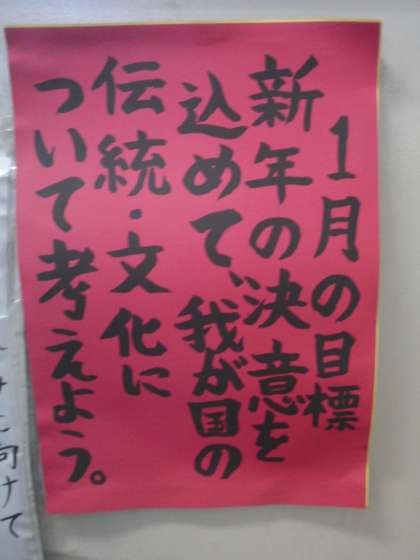 1月の目標
新年の決意を
込めて、我が国の
伝統・文化に
ついて考えよう。
に向けて